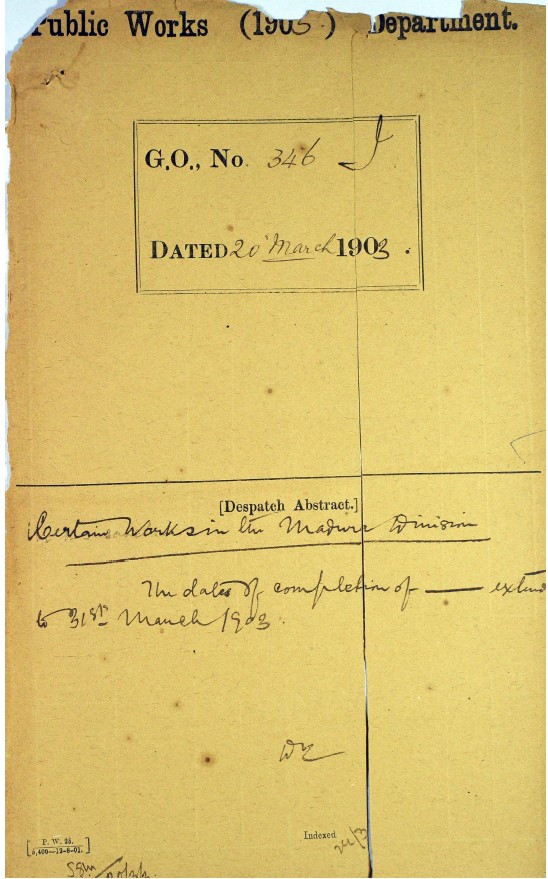 Public Works (1903) Department.
G.O., No. 346 I
DATED 20 March 1903.
[Despatch Abstract.]
Certain Works in the Madura Division
The dates of completion of — extend
to 31st March 1903.
Indexed
24/3
[P. W. 25.
5,400—12-8-01.]